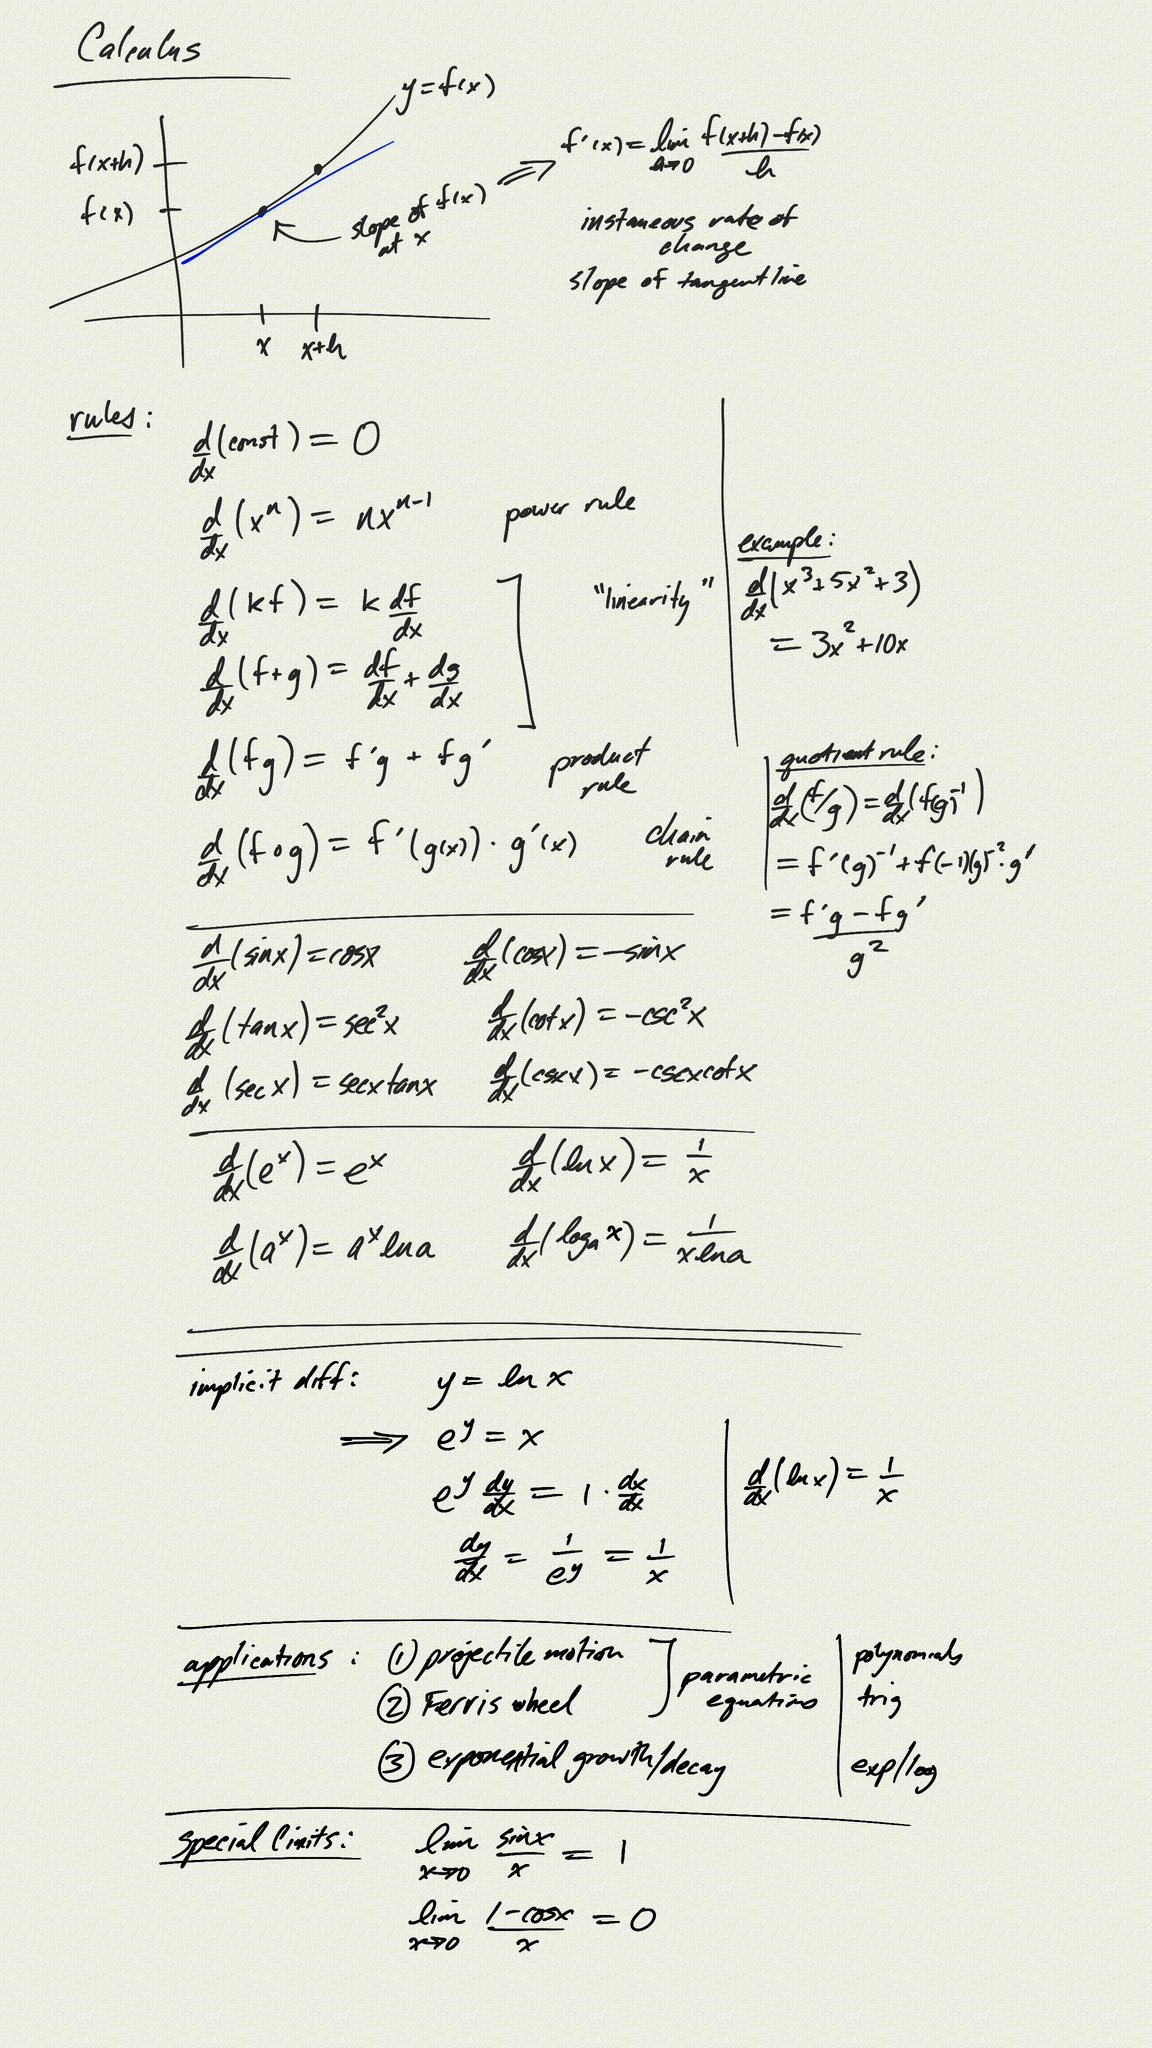 Calculus
y=f(x)
f(x+h)
f(x)
slope of f(x)
at x
x x+h
f'(x) = lim_{h→0} (f(x+h)-f(x))/h
instaneous rate of
change
slope of tangent line
rules:
d/dx (const) = 0
d/dx (x^n) = nx^{n-1} power rule
d/dx (kf) = k df/dx
"linearity"
d/dx (f+g) = df/dx + dg/dx
example:
d/dx (x^3+5x^2+3)
= 3x^2+10x
d/dx (fg) = f'g + fg' product
rule
d/dx (f∘g) = f'(g(x)) · g'(x) chain
rule
quotient rule:
d/dx (f/g) = d/dx (f(g)^{-1})
= f'(g)^{-1} + f(-1)(g)^{-2} · g'
= (f'g - fg')/g^2
d/dx (sinx) = cosx d/dx (cosx) = -sinx
d/dx (tanx) = sec^2x d/dx (cotx) = -csc^2x
d/dx (secx) = secxtanx d/dx (cscx) = -cscxcotx
d/dx (e^x) = e^x d/dx (lnx) = 1/x
d/dx (a^x) = a^x lna d/dx (log_a x) = 1/(xlna)
implicit diff: y = ln x
⟹ e^y = x
e^y dy/dx = 1 · dx/dx
dy/dx = 1/e^y = 1/x
d/dx (lnx) = 1/x
applications: ① projectile motion
② Ferris wheel
parametric
equations
③ exponential growth/decay
polynomials
trig
exp/log
special limits: lim_{x→0} sinx/x = 1
lim_{x→0} (1-cosx)/x = 0